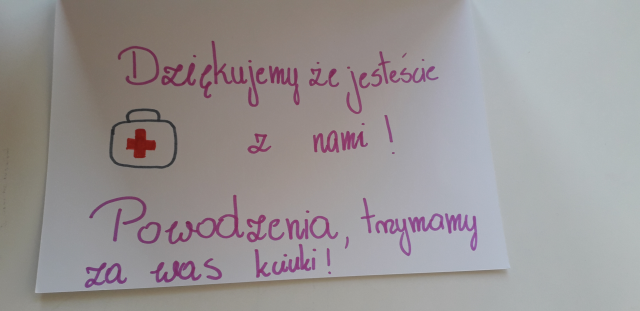 Dziękujemy że jesteście
z nami!
Powodzenia, trzymamy
za was kciuki!